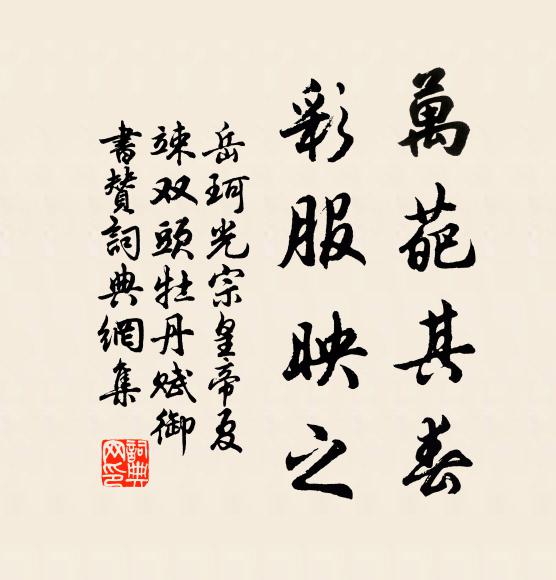 萬葩其春
彩服映之
岳珂光宗皇帝夏
竦双頭牡丹賦御
書贊詞典網集
詞典网印